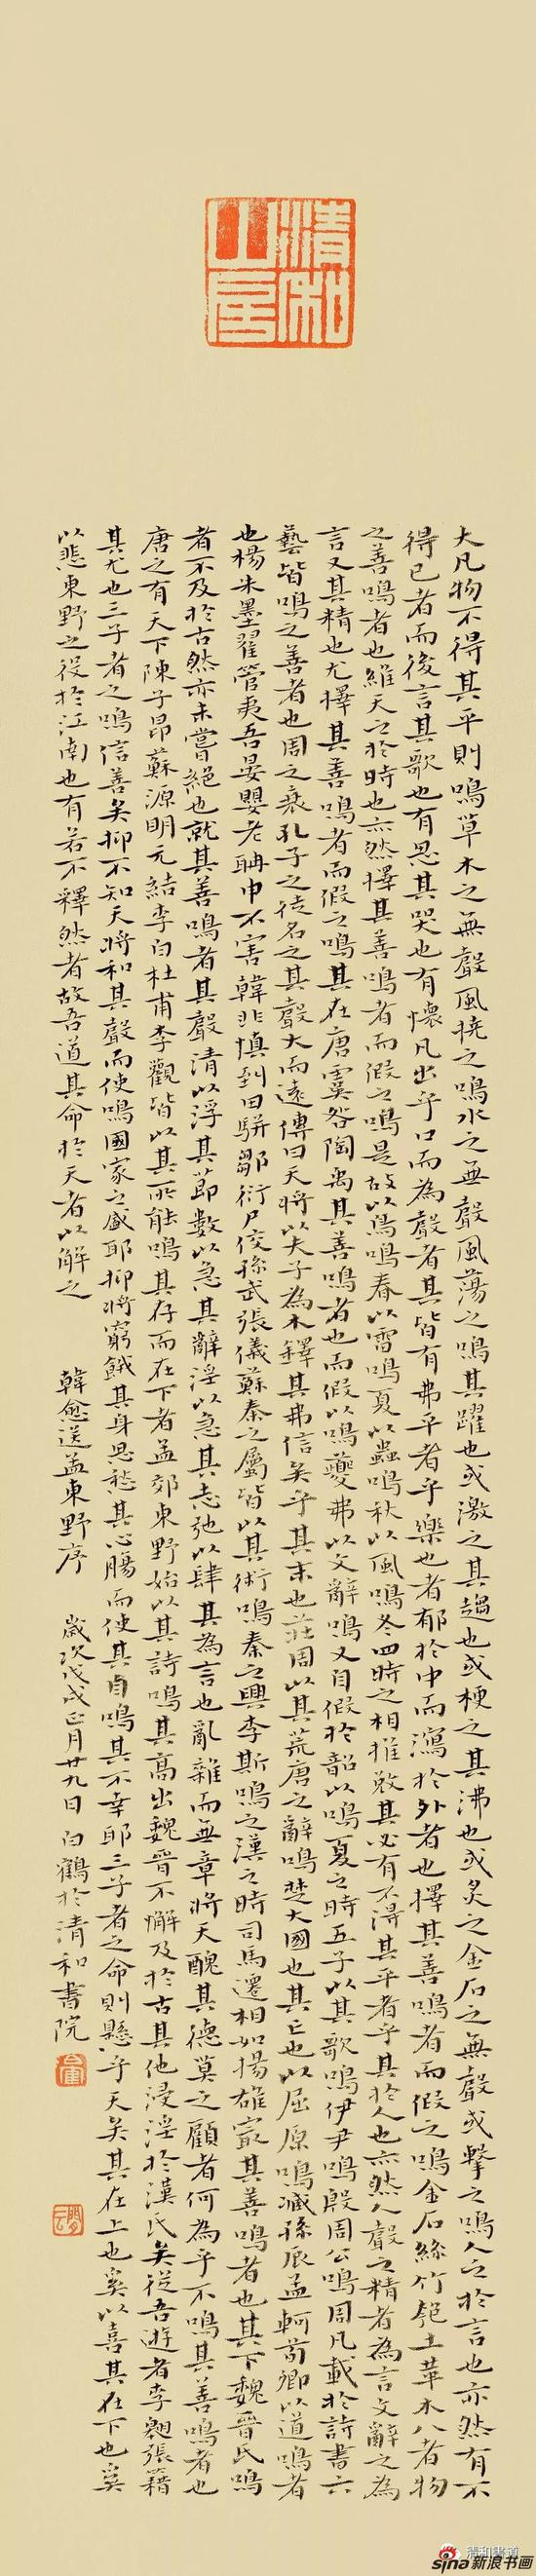 清和山房
大凡物不得其平則鳴草木之無聲風撓之鳴水之無聲風蕩之鳴其躍也或激之其趨也或梗之其沸也或炙之金石之無聲或擊之鳴人之於言也亦然有不
得已者而後言其歌也有思其哭也有懷凡出乎口而為聲者其皆有弗平者乎樂也者郁於中而瀉於外者也擇其善鳴者而假之鳴金石絲竹匏土革木八者物
之善鳴者也維天之於時也亦然擇其善鳴者而假之鳴是故以鳥鳴春以雷鳴夏以蟲鳴秋以風鳴冬四時之相推敚其必有不得其平者乎其於人也亦然人聲之精者為言文辭之為
言又其精也尤擇其善鳴者而假之鳴其在唐虞咎陶禹其善鳴者也而假以鳴夔弗以文辭鳴又自假於韶以鳴夏之時五子以其歌鳴伊尹鳴殷周公鳴周凡載於詩書六
藝皆鳴之善者也周之衰孔子之徒名之其聲大而遠傳曰天將以夫子為木鐸其弗信矣乎其末也莊周以其荒唐之辭鳴楚大國也其亡也以屈原鳴臧孫辰孟軻荀卿以道鳴者
也楊朱墨翟管夷吾晏嬰老聃申不害韓非慎到田駢鄒衍尸佼孫武張儀蘇秦之屬皆以其術鳴秦之興李斯鳴之漢之時司馬遷相如揚雄最其善鳴者也其下魏晉氏鳴
者不及於古然亦未嘗絕也就其善鳴者其聲清以浮其節數以急其辭淫以急其志弛以肆其為言也亂雜而無章將天醜其德莫之顧者何為乎不鳴其善鳴者也
唐之有天下陳子昂蘇源明元結李白杜甫李觀皆以其所能鳴其存而在下者孟郊東野始以其詩鳴其高出魏晉不懈及於古其他浸淫於漢氏矣從吾遊者李翱張籍
其尤也三子者之鳴信善矣抑不知天將和其聲而使鳴國家之盛耶抑將窮餓其身思愁其心腸而使其自鳴其不幸耶三子者之命則懸乎天矣其在上也奚以喜其在下也奚
以悲東野之役於江南也有若不釋然者故吾道其命於天者以解之 韓愈送孟東野序 歲次戊戌正月廿九日 白鶴於清和書院
清和書道
sina新浪书画